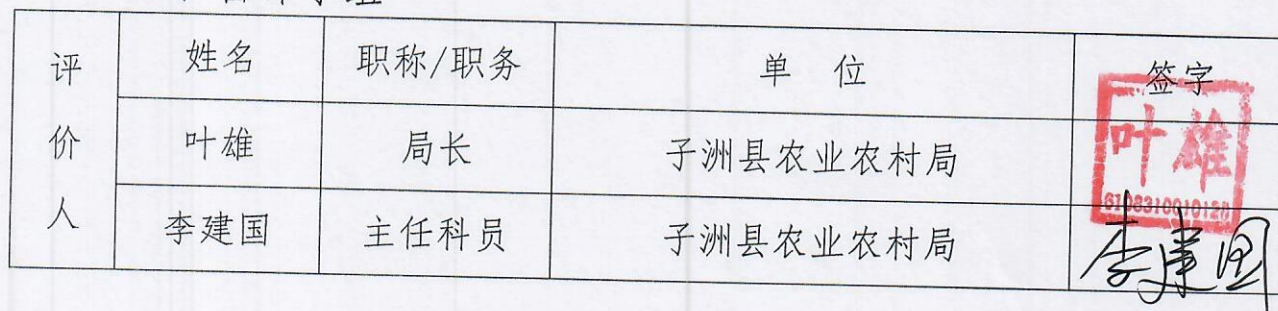 评价人
姓名 职称/职务 单 位 签字
叶雄 局长 子洲县农业农村局 叶雄
6108310010128
李建国 主任科员 子洲县农业农村局 李建国